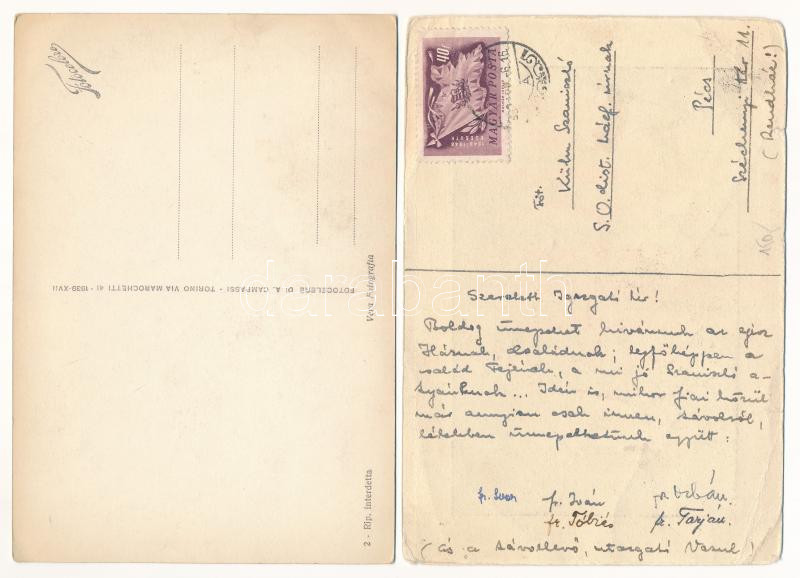 FOTOCELERE DI A. CAMPASSI - TORINO VIA MAROCHETTI 41 - 1939-XVII
Vera Fotografia
2 - Rip. interdetta
40f
MAGYAR POSTA
1848-1948
KOSSUTH
Főt.
Kühn Szaniszló
S. O. Cist. házf. úrnak
Pécs
Széchenyi tér 11.
(Rendház!)
150
Szeretett Igazgató Úr!
Boldog ünnepeket kívánunk az egész
Háznak, családnak; legfőképpen a
család Fejének, a mi jó Szaniszló a-
tyánknak... Idén is, mikor fiai közül
már annyian csak innen, távolról,
lélekben ünnepelhetünk együtt:
fr. Iván
fr. Urbán.
fr. Tóbiás
fr. Tarján.
(és a távollevő, utazgató Vazul!)
darabanth